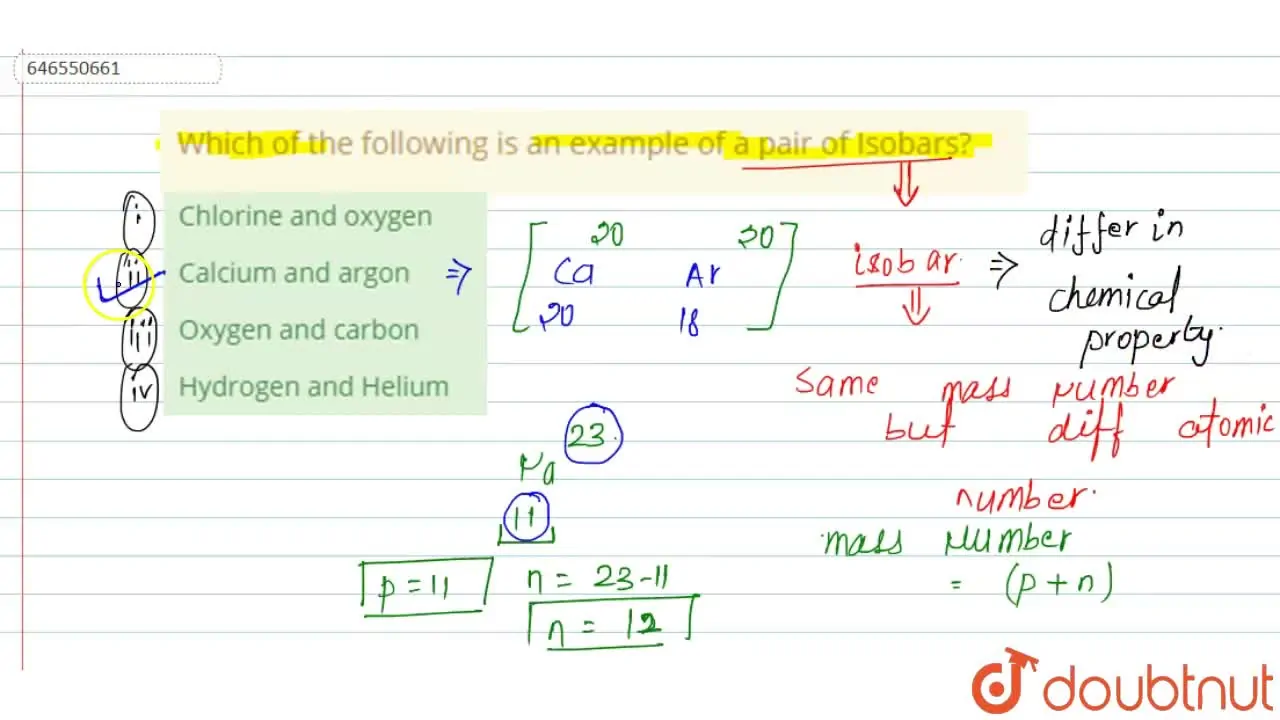 646550661
Which of the following is an example of a pair of Isobars?
i Chlorine and oxygen
ii Calcium and argon ⇒
iii Oxygen and carbon
iv Hydrogen and Helium
20 20
Ca Ar
20 18
isobar ⇒
differ in
chemical
property.
same mass number
but diff atomic
number.
23
Na
11
p = 11
n = 23-11
n = 12
mass number
= (p + n)
doubtnut